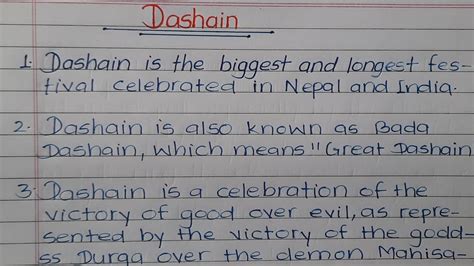 Dashain
1. Dashain is the biggest and longest fes-
tival celebrated in Nepal and India.
2. Dashain is also known as Bada
Dashain, which means "Great Dashain
3. Dashain is a celebration of the
victory of good over evil, as repre-
sented by the victory of the godd-
ss Durga over the demon Mahisa-